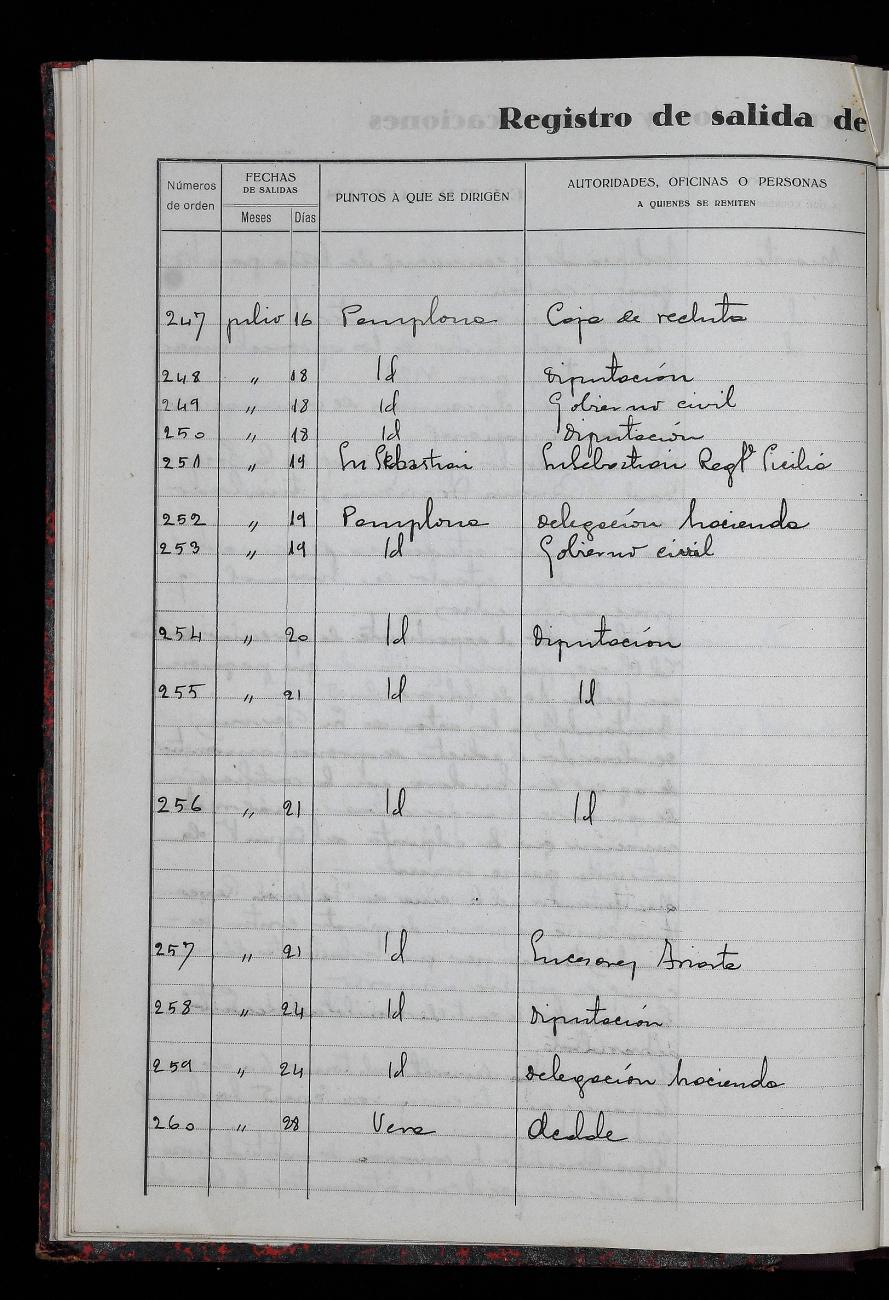 Registro de salida de
Números de orden
FECHAS DE SALIDAS
Meses Días
PUNTOS A QUE SE DIRIGEN
AUTORIDADES, OFICINAS O PERSONAS
A QUIENES SE REMITEN
247 julio 16 Pamplona Caja de recluta
248 " 18 Id Diputación
249 " 18 Id Gobierno civil
250 " 18 Id Diputación
251 " 19 Sn Sebastian Sn Sebastian Regt Sicilia
252 " 19 Pamplona delegación hacienda
253 " 19 Id Gobierno civil
254 " 20 Id Diputación
255 " 21 Id Id
256 " 21 Id Id
257 " 21 Id Sucesores
258 " 24 Id Diputación
259 " 24 Id delegación hacienda
260 " 28 Vera alcalde